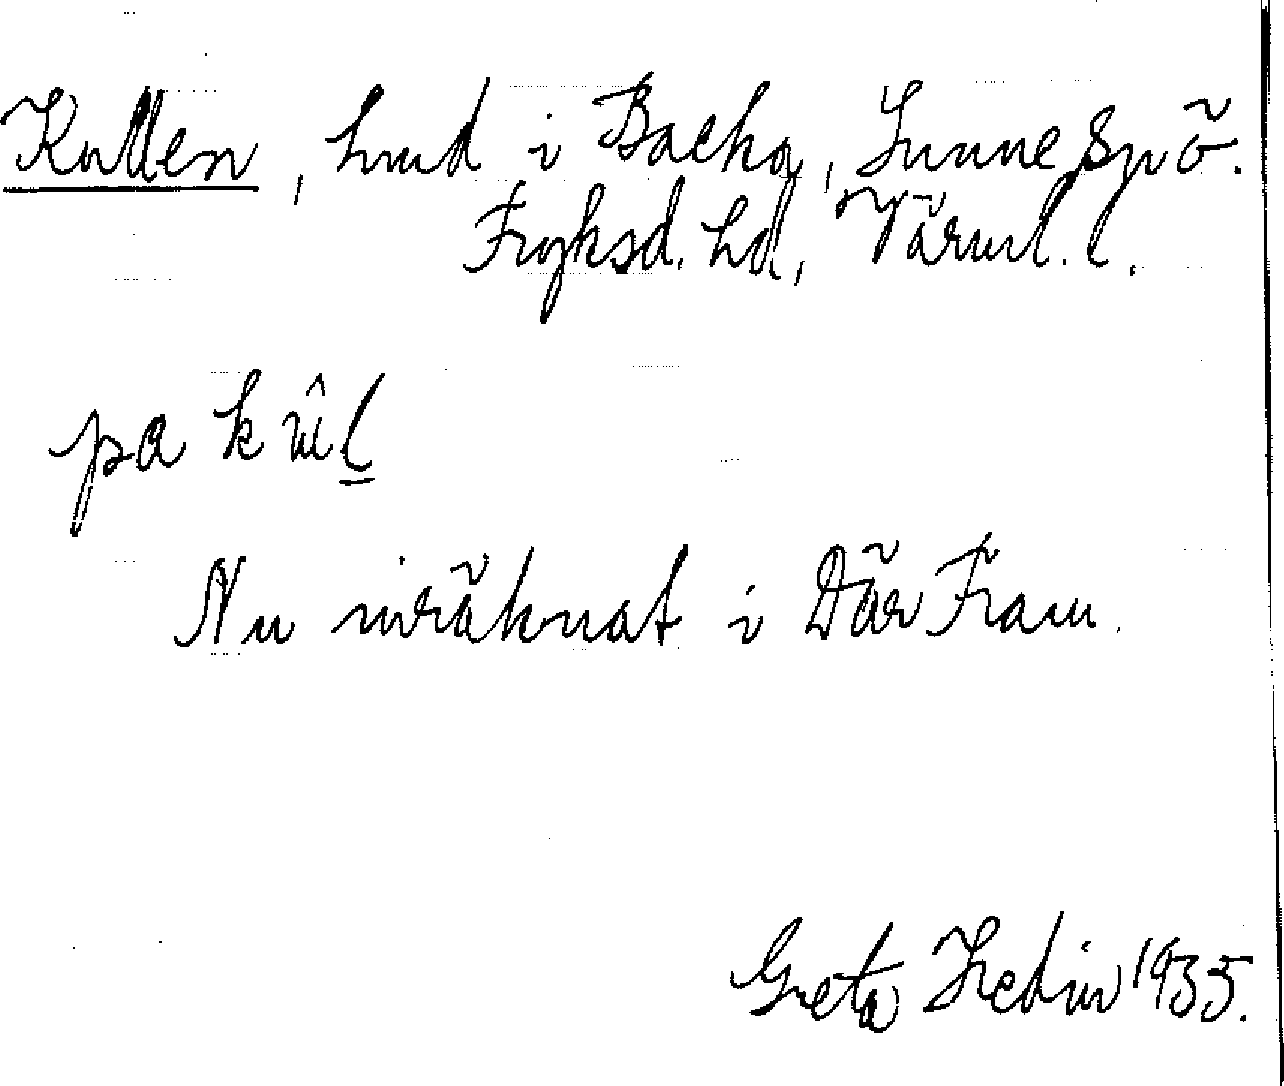 Kullen, hmd i Backa, Sunne sn ö.
Fryksd. hd, Värml. l.
pa kûl
Nu inräknat i Där Fram.
Greta Hedin 1935.